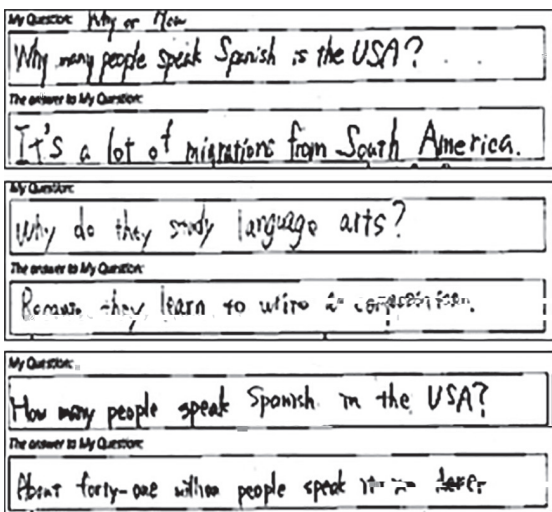 My Question: Why or How
Why many people speak Spanish is the USA?
The answer to My Question:
It's a lot of migrations from South America.
My Question:
Why do they study language arts?
The answer to My Question:
Because they learn to write a composition.
My Question:
How many people speak Spanish in the USA?
The answer to My Question:
About forty-one million people speak it